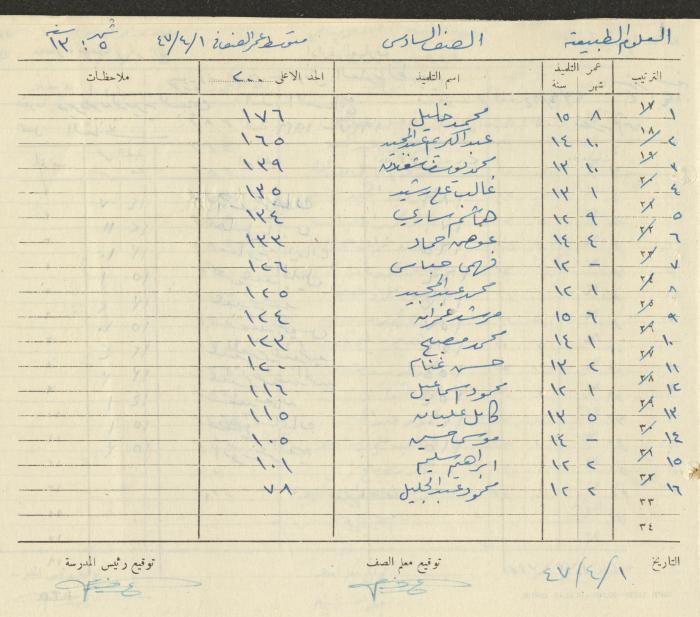 العلوم الطبيعية الصف السادس متوسط عمر الصف في ٤٧/٤/١ شهر ٥ : سنة ١٣
الترتيب عمر التلميذ شهر سنة اسم التلميذ الحد الاعلى ٢٠٠ ملاحظات
١ ١٧ ٨ ١٥ محمد خليل ١٧٦
٢ ١٨ ١٠ ١٤ عبد الكريم عبد المجيد ١٦٥
٣ ١٩ ١٠ ١٣ محمد يوسف ١٣٩
٤ ٢٠ ١ ١٣ غالب علي رشيد ١٣٥
٥ ٢١ ٩ ١٢ هاشم ساري ١٣٤
٦ ٢٢ ٤ ١٤ عوض حماد ١٣٣
٧ ٢٣ - ١٢ فهمي عباسي ١٢٦
٨ ٢٤ ١ ١٢ محمد عبد المجيد ١٢٥
٩ ٢٥ ٦ ١٥ مرشد عمران ١٢٤
١٠ ٢٦ ١ ١٤ محمد مصبح ١٢٣
١١ ٢٧ ٢ ١٣ حسن غنام ١٢٠
١٢ ٢٨ ١ ١٢ محمود اسماعيل ١١٦
١٣ ٢٩ ٥ ١٣ كامل عليان ١١٥
١٤ ٣٠ - ١٤ موسى حسين ١٠٥
١٥ ٣١ ٢ ١٢ ابراهيم سليم ١٠١
١٦ ٣٢ ٢ ١٢ محمود عبد الجليل ٧٨
٣٣
٣٤
التاريخ ٤٧/٤/١ توقيع معلم الصف توقيع رئيس المدرسة